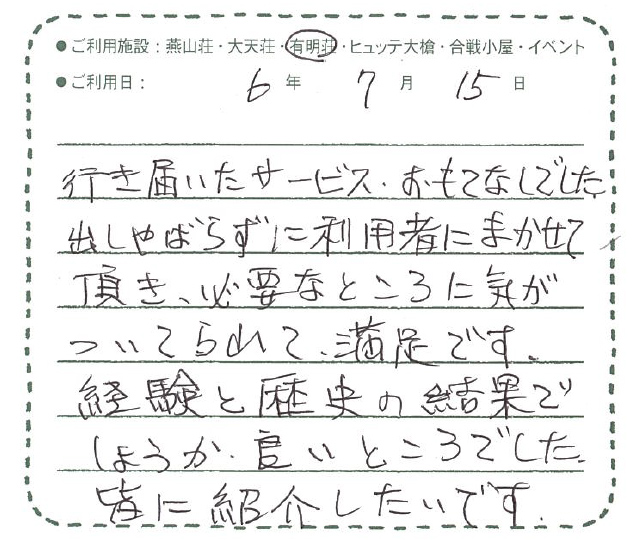 ●ご利用施設：燕山荘・大天荘・有明荘・ヒュッテ大槍・合戦小屋・イベント
●ご利用日： 6年 7月 15日
行き届いたサービス・おもてなしでした。
出しゃばらずに利用者にまかせて
頂き、必要なところに気が
ついてられて、満足です。
経験と歴史の結果で
しょうか。良いところでした。
皆に紹介したいです。